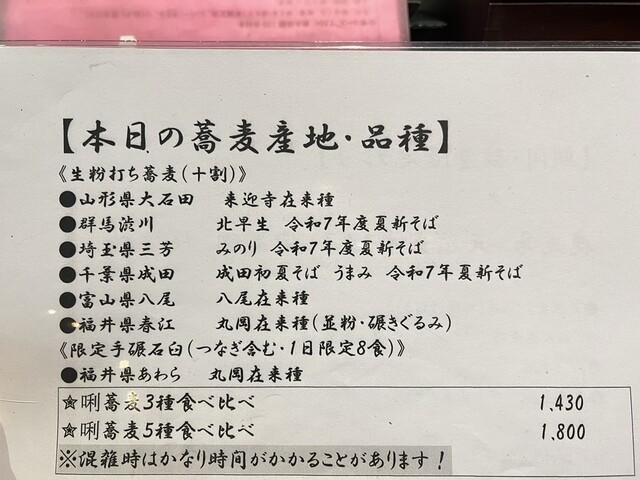 【本日の蕎麦産地・品種】
《生粉打ち蕎麦(十割)》
●山形県大石田 来迎寺在来種
●群馬渋川 北早生 令和7年度夏新そば
●埼玉県三芳 みのり 令和7年度夏新そば
●千葉県成田 成田初夏そば うまみ 令和7年夏新そば
●富山県八尾 八尾在来種
●福井県春江 丸岡在来種(並粉・碾きぐるみ)
《限定手碾石臼(つなぎ含む・1日限定8食)》
●福井県あわら 丸岡在来種
☆唎蕎麦3種食べ比べ 1,430
☆唎蕎麦5種食べ比べ 1,800
※混雑時はかなり時間がかかることがあります!